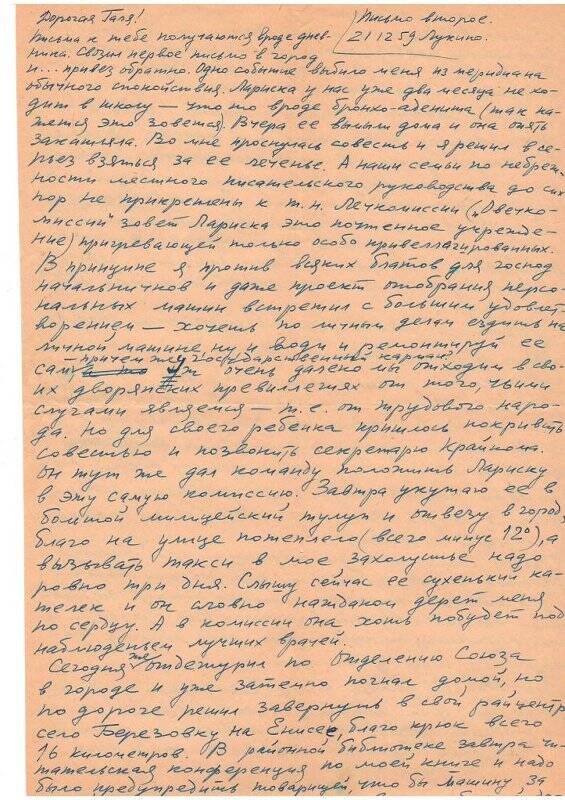 Дорогая Галя!
Письмо второе.
21 12 59 Лукино.
Письма к тебе получаются вроде днев-
ника. Свозил первое письмо в город
и... привез обратно. Одно событие выбило меня из меридиана
обычного спокойствия. Лариска у нас уже два месяца не хо-
дит в школу — что то вроде бронхо-аденита (так ка-
жется это зовется). Вчера ее вымыли дома и она опять
закашляла. Во мне проснулась совесть и я решил все-
рьез взяться за ее леченье. А наши семьи по небреж-
ности местного писательского руководства до сих
пор не прикреплены к т.н. Лечкомиссии („Овечко-
миссий" зовет Лариска это почтенное учрежде-
ние) пригревающей только особо привеллагированных.
В принципе я против всяких блатов для господ
начальничков и даже проект отобрания персо-
нальных машин встретил с большим удовлет-
ворением — хочешь по личным делам ездить на
личной машине, ну и води и ремонтируй ее
сам,
— причем же у государственный карман?
Уж очень далеко мы отходим в сво-
их дворянских превилегиях от того, чьими
слугами являемся — т.е. от трудового наро-
да. Но для своего ребенка пришлось покривить
совестью и позвонить секретарю Крайкома.
Он тут же дал команду положить Лариску
в эту самую комиссию. Завтра укутаю ее в
большой милицейский тулуп и отвезу в город,
благо на улице потеплело (всего минус 12°), а
вызывать такси в мое захолустье надо
ровно три дня. Слышу сейчас ее сухенький ка-
телек и он словно наждаком дерет меня
по сердцу. А в комиссии она хоть побудет под
наблюденьем лучших врачей.
Сегодня же отдежурил по отделению Союза
в городе и уже затемно погнал домой, но
по дороге решил завернуть в свой райцентр
село Березовку на Енисее, благо крюк всего
16 километров. В районной библиотеке завтра чи-
тательская конференция по моей книге и надо
было предупредить товарищей, что бы машину за